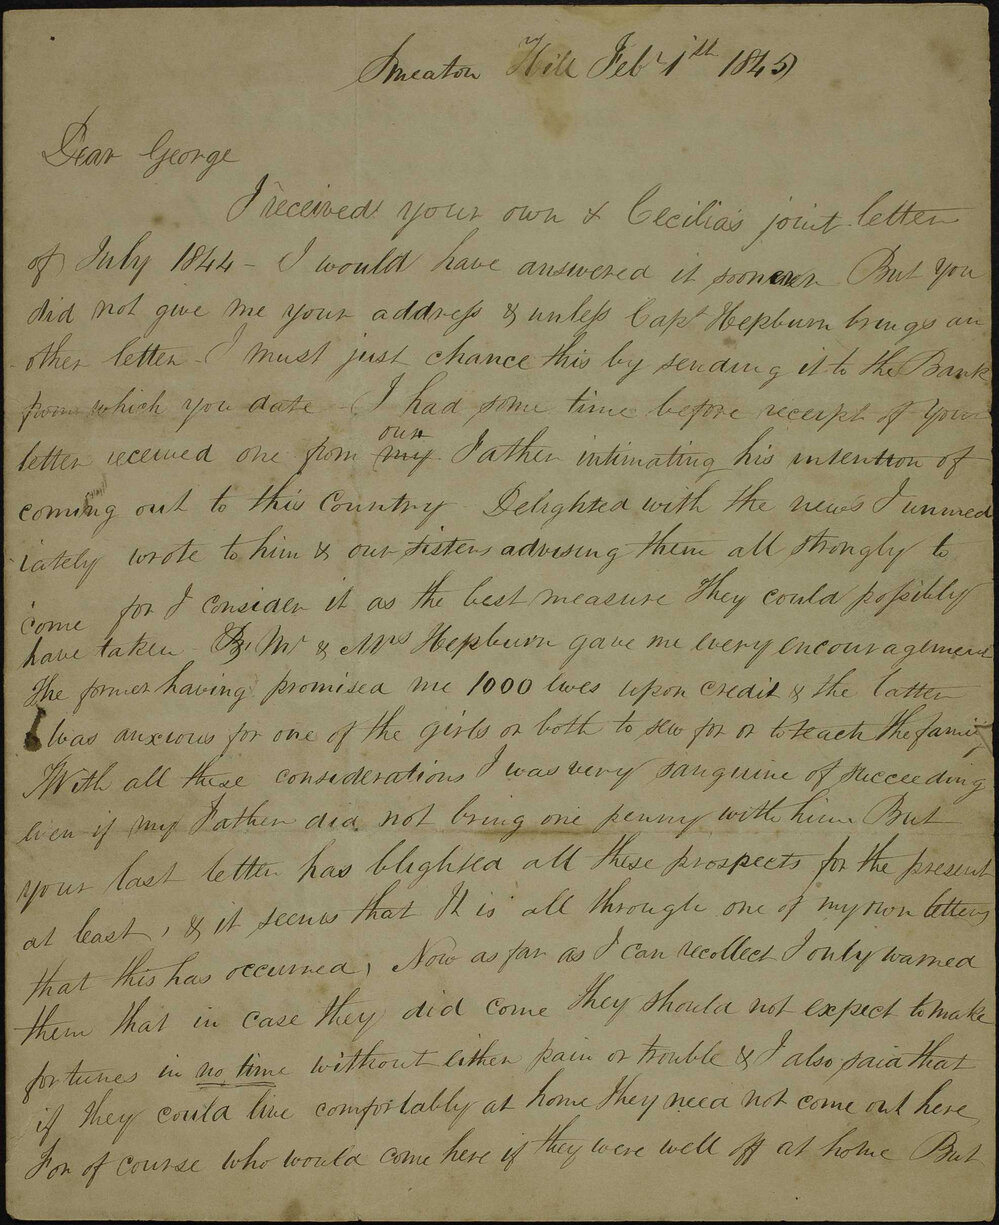 Smeaton Hill Feb 1th 1845
Dear George
I received your own & Cecilia's joint letter
of July 1844 - I would have answered it sooner But you
did not give me your address & unless Capt Hepburn brings an
other letter I must just chance this by sending it to the Bank
from which you date - I had some time before receipt of your
our
letter received one from my Father intimating his intention of
coming out to this Country Delighted with the news I immed
iately wrote to him & our sisters advising them all strongly to
come for I consider it as the best measure they could possibly
have taken Mr & Mrs Hepburn gave me every encouragement
the former having promised me 1000 ewes upon credit & the latter
was anxious for one of the girls or both to sew for or to teach the family
With all these considerations I was very sanguine of succeeding
even if my Father did not bring one penny with him But
your last letter has blighted all these prospects for the present
at least, & it seems that It is all through one of my own letters
that this has occurred, Now as far as I can recollect I only warned
them that in case they did come they should not expect to make
fortunes in no time without either pain or trouble & I also said that
if they could live comfortably at home they need not come out here
For of course who would come here if they were well off at home But